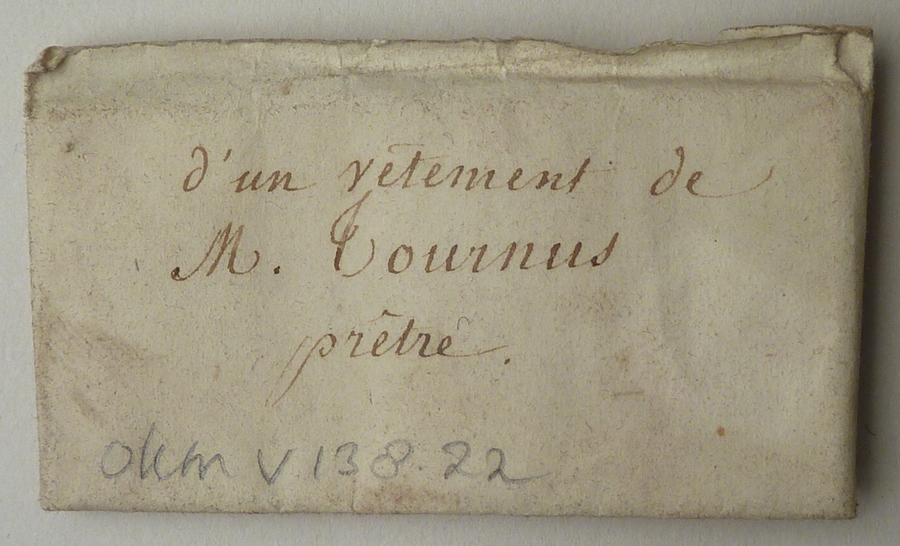 d'un vêtement de
M. Tournus
prêtre.
okm v 138.22